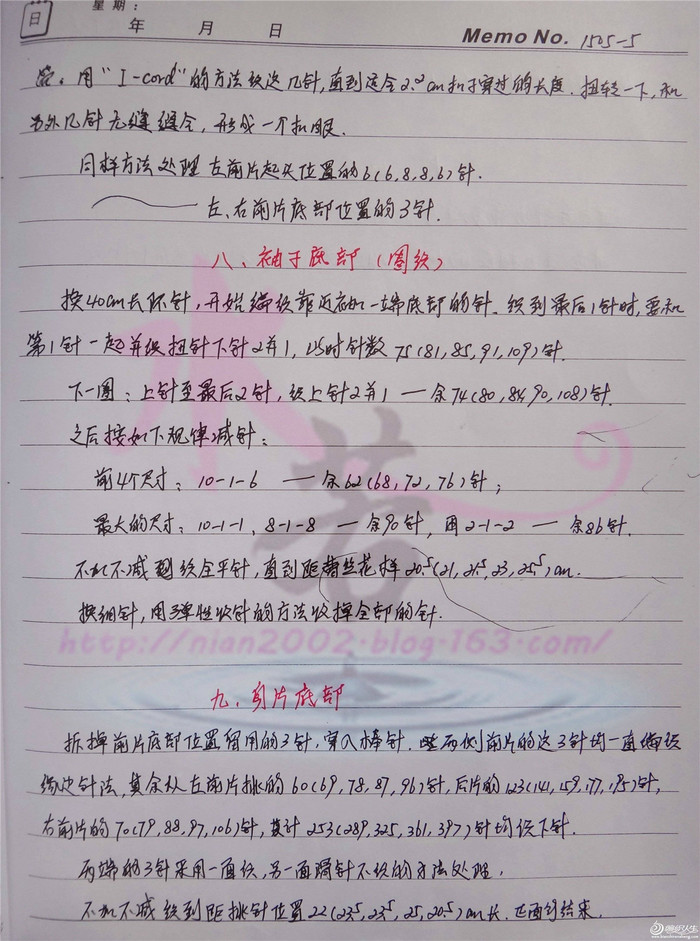 日
星期：
年 月 日
Memo No. 1505-5
带。用“I-cord”的方法织这几针,直到适合2.2cm扣子穿过的长度.扭转一下,和
另外几针无缝缝合,形成一个扣眼.
同样方法处理左前片起头位置的6(6,8,8,6)针.
左、右前片底部位置的3针.
八、袖子底部(圈织)
换40cm长环针,开始编织靠近袖一端底部的针.织到最后1针时,要和
第1针一起并织扭针下针2并1,此时针数75(81,85,91,109)针.
下一圈:上针至最后2针,织上针2并1—余74(80,84,90,108)针.
之后按如下规律减针:
前4个尺寸:10-1-6 —余62(68,72,76)针;
最大的尺寸:10-1-1,8-1-8—余90针,再2-1-2—余86针.
不加不减 织全平针,直到距蕾丝花样20.5(21,21.5,23,25.5)cm.
换细针,用弹性收针的方法收掉全部的针.
水若
http://nian2002.blog.163.com/
九、身片底部
拆掉前片底部位置留用的3针,穿入棒针. 两侧前片的这3针均一直编织
缘边针法,其余从左前片挑的60(69,78,87,96)针,后片的123(141,159,177,195)针,
右前片的70(79,88,97,106)针,共计253(289,325,361,397)针均织下针.
两端的3针采用一面织,另一面滑针不织的方法处理.
不加不减织到距挑针位置22(23.5,23.5,25,20.5)cm长.正面行结束.